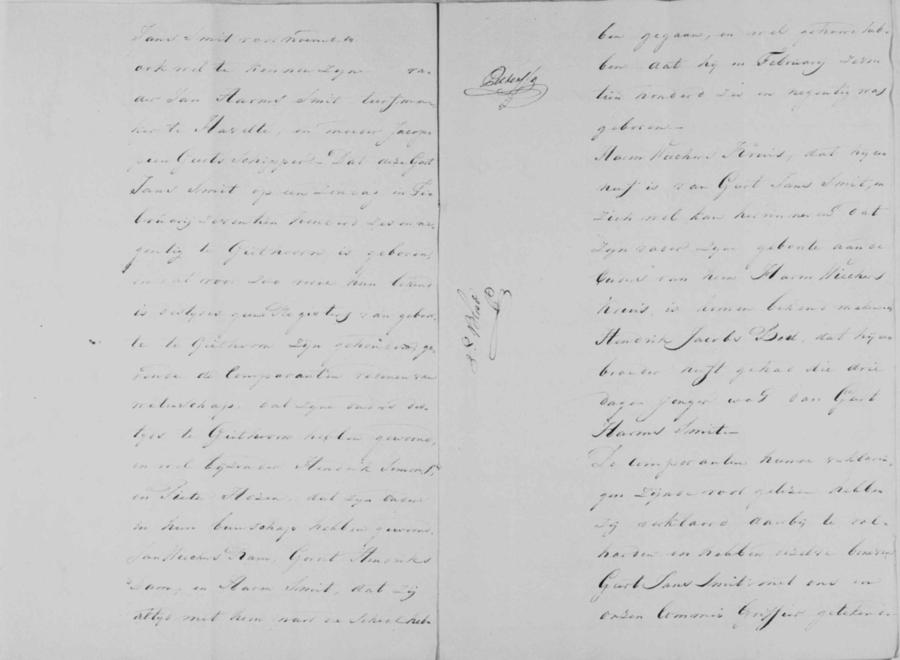 Jans Smit voornoemd
ook wel te kennen zyn va-
der Jan Harms Smit turfmaa-
ker te Hasselte, en moeder Jacob-
jen Geerts Schipper - Dat deze Geert
Jans Smit op een Zondag in Fe-
bruarij zeventien honderd zes en ne-
gentig te Giethoorn is geboren,
en dat voor zoo verre hun bekend
is destyds geene Registers van geboor-
te te Giethoorn zyn gehouden ge-
vende de Comparanten redenen van
wetenschap, dat zyne ouders des-
tyds te Giethoorn hebben gewoond,
en wel byzonder Hendrik Simons
en Siete dat zyn ouders
in hun buurschap hebben gewoond
Jan Wichers Ram, Geert Hendriks
Dam, en Harm Smit, dat zij
altyd met hem naar de School heb-
ben gegaan, en wel gehoord heb-
ben dat hij in February zeven-
tien honderd zes en negentig was
geboren -
Harm Wichers Kruis, dat hy
neef is van Geert Jans Smit, en
zich wel kan herinneren dat
zyn vader zyne geboorte aan de
ouders van hem Harm Wichers
Kruis, is komen bekend maken
Hendrik Jacobs dat hy een
broeder heeft gehad die drie
dagen jonger was dan Geert
Harms Smit -
De Comparanten hunne verklarin-
gen zynde voorgelezen hebben
zij verklaard daarbij te vol-
harden en hebben dezelve benevens
Geert Jans Smit met ons en
onzen Commis Griffier getekend